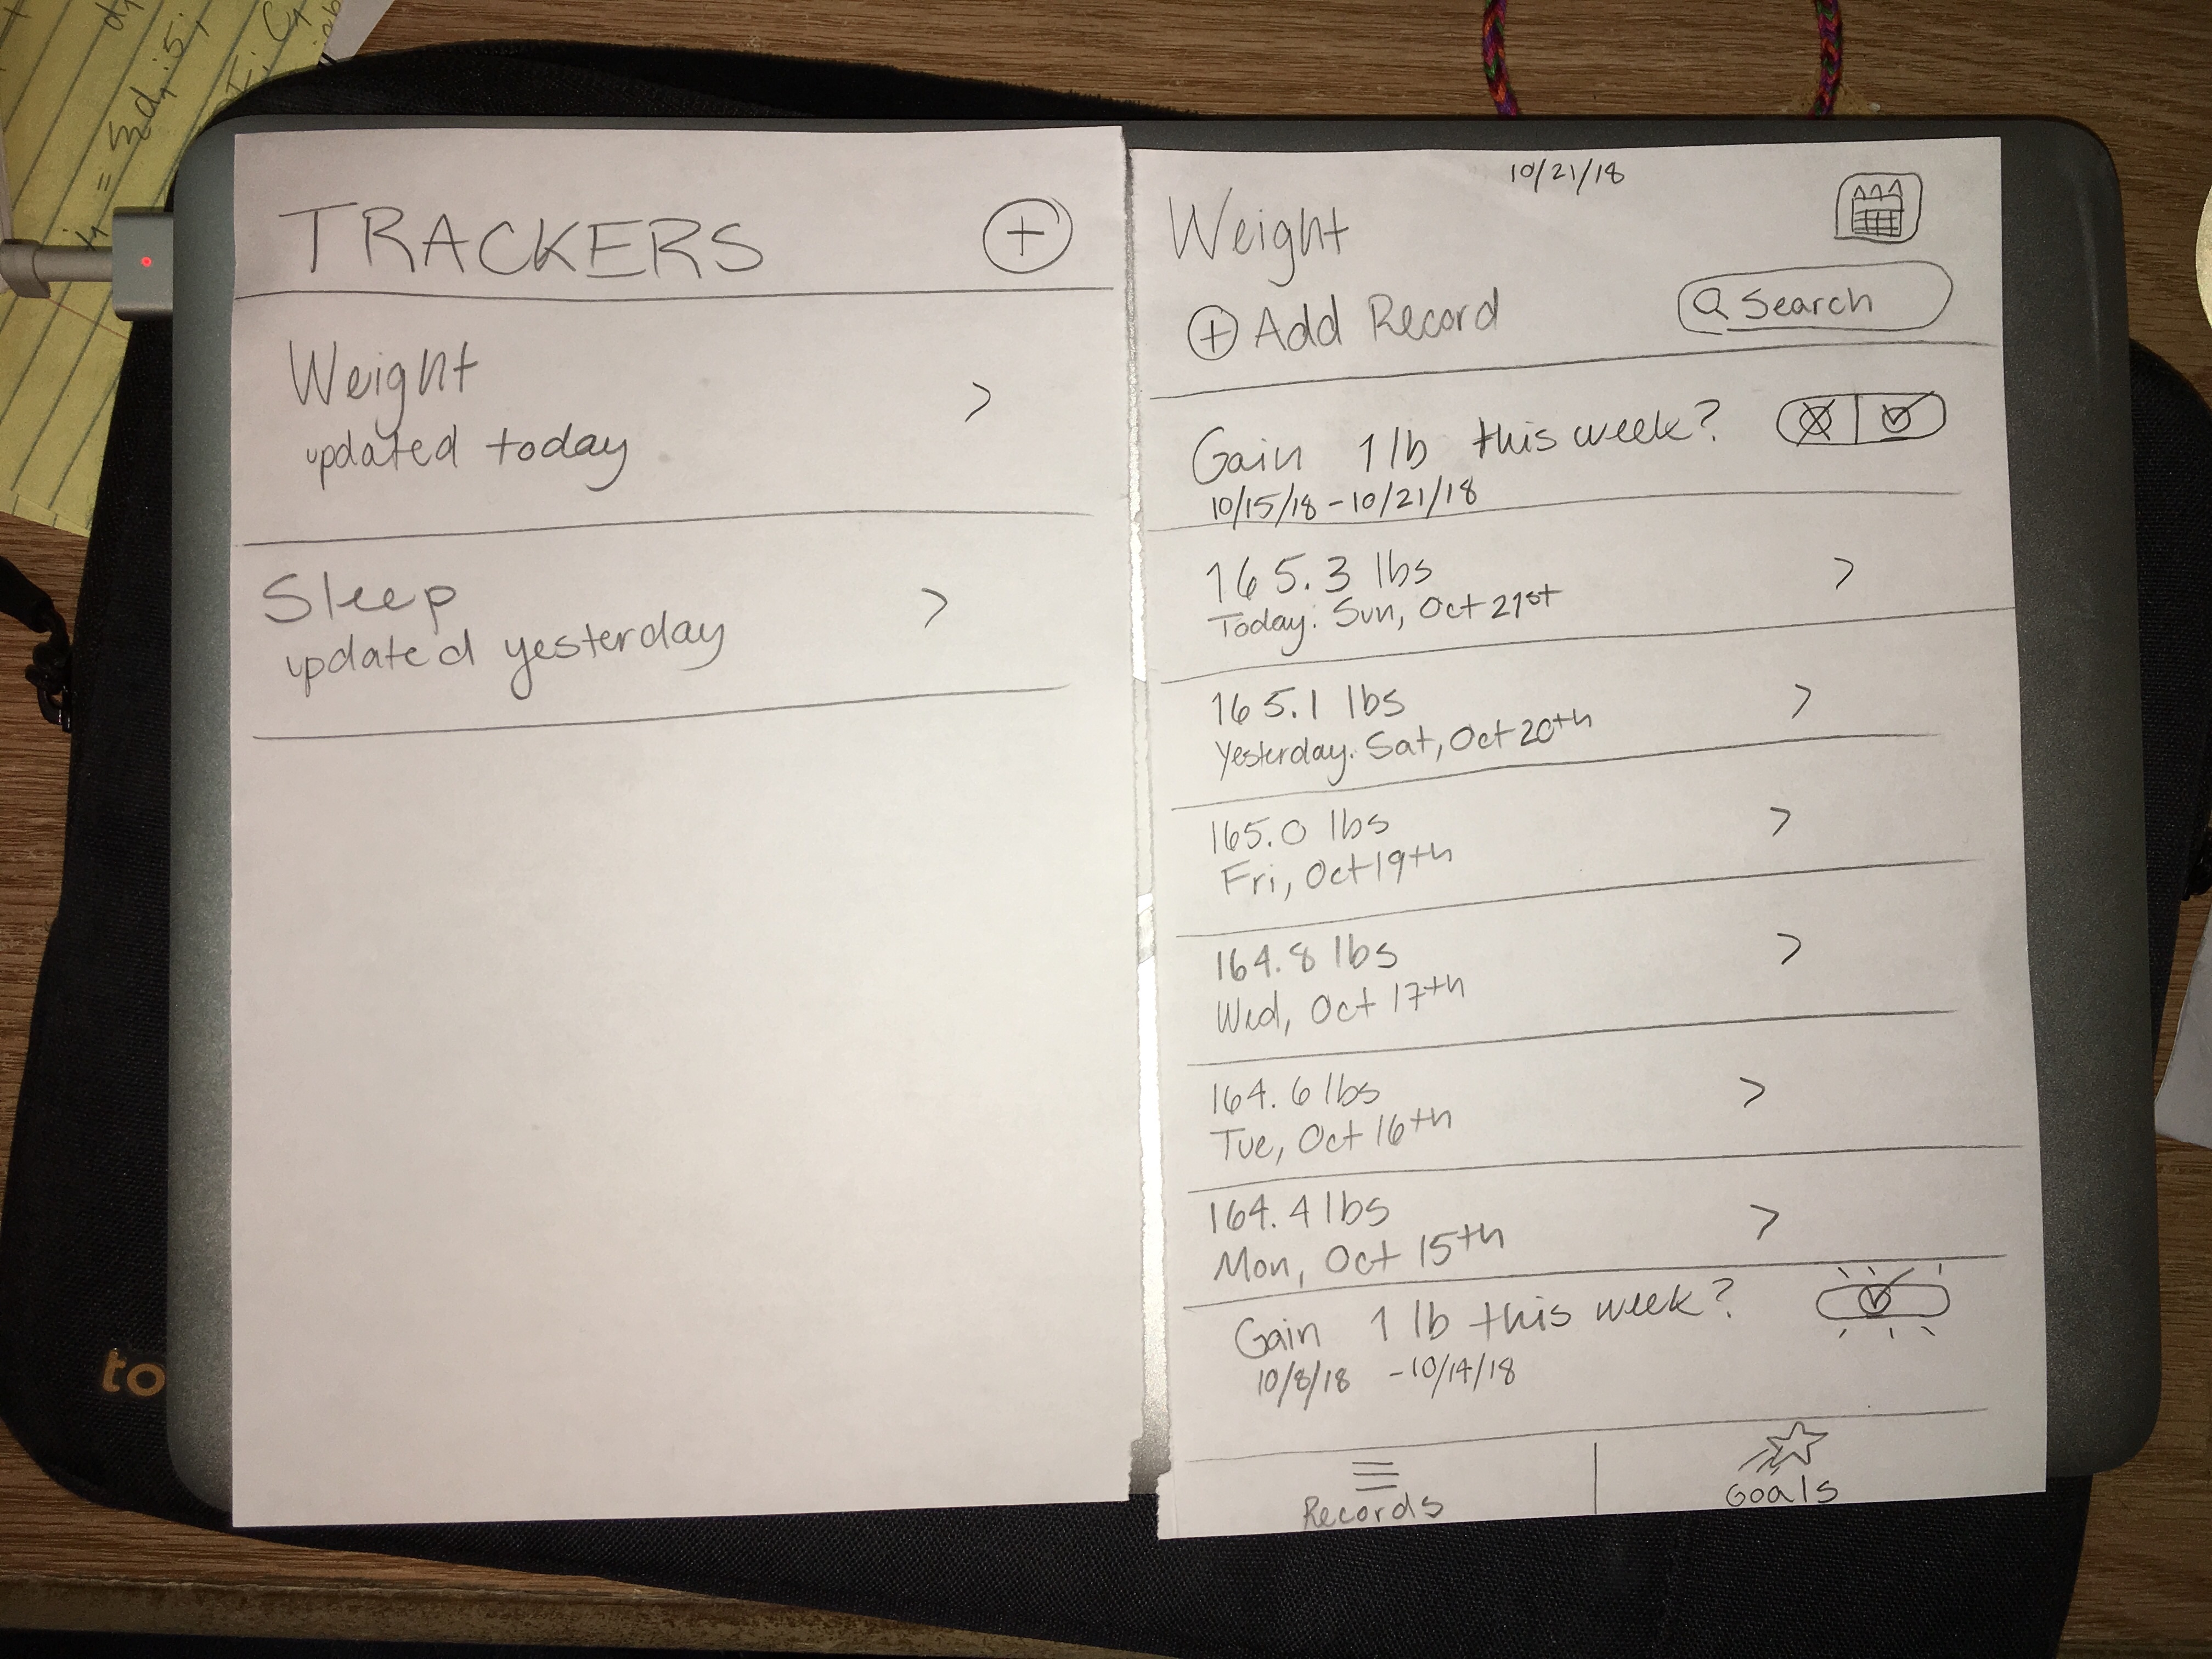 TRACKERS +
Weight
updated today >
Sleep
updated yesterday >
10/21/18
Weight
+ Add Record
Search
Gain 1 lb this week?
10/15/18 - 10/21/18
165.3 lbs >
Today: Sun, Oct 21st
165.1 lbs >
Yesterday. Sat, Oct 20th
165.0 lbs >
Fri, Oct 19th
164.8 lbs >
Wed, Oct 17th
164.6 lbs >
Tue, Oct 16th
164.4 lbs >
Mon, Oct 15th
Gain 1 lb this week?
10/8/18 - 10/14/18
Records
Goals
to